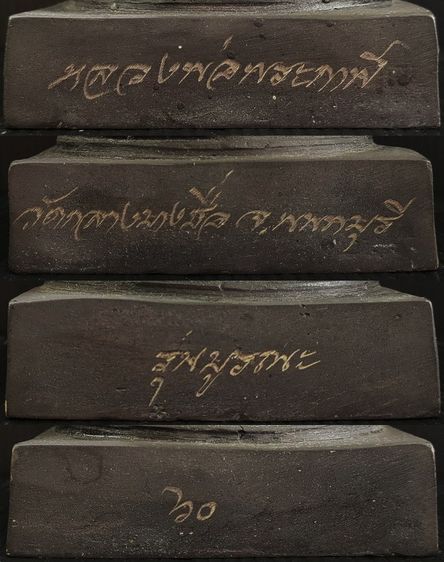 หลวงพ่อพระกาฬ
วัดกลางบางซื่อ จ.นนทบุรี
รุ่นบูรณะ
๖๐